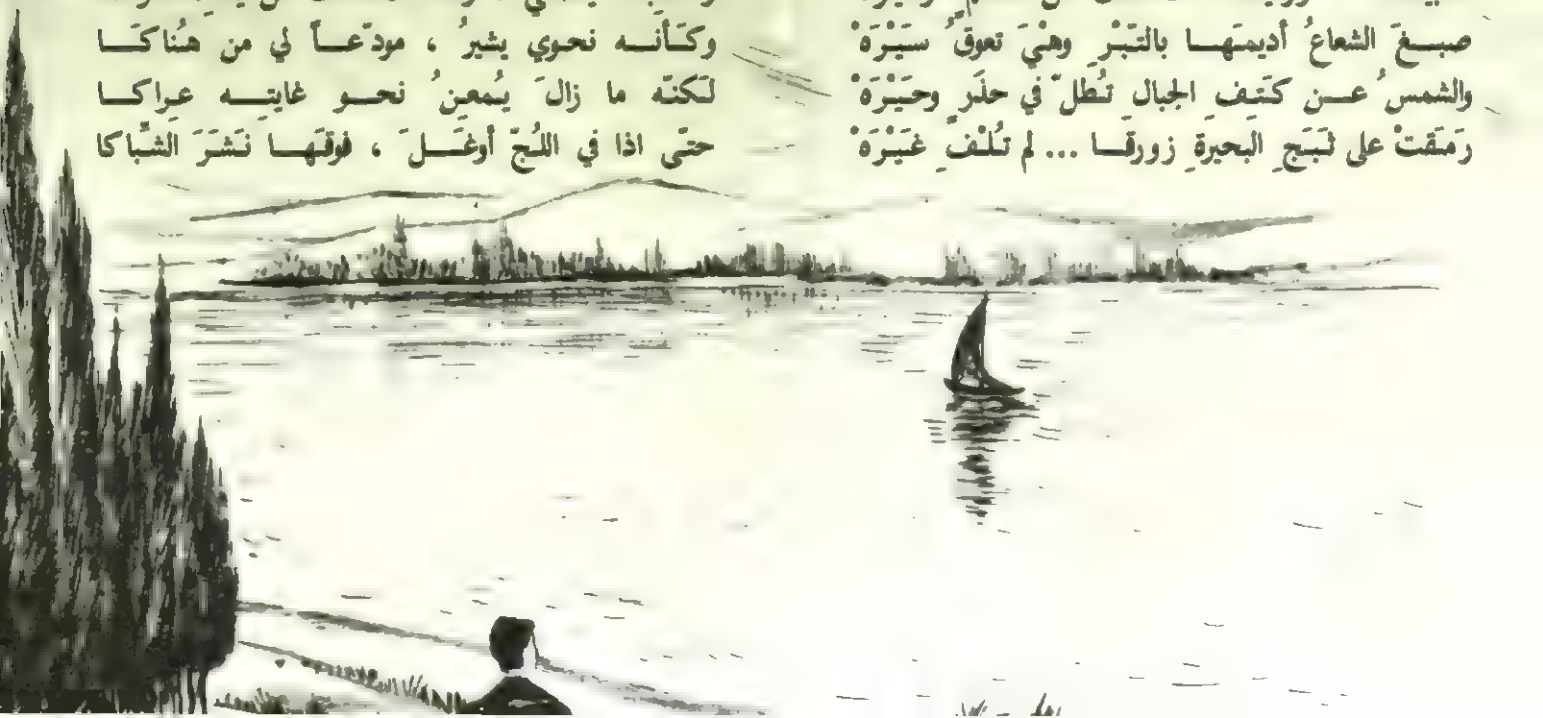 صبغَ الشعاعُ أديمَها بالتبْرِ وهْيَ تعوقُ سيَرْهَْ
والشمسُ عن كتَفِ الجبالِ تُطلّ في حذَرٍ وحَيَرْهَْ
رَمَقتْ على ثَبَجِ البحيرةِ زورقا ... لم تُلْفِ غَيَرْهَْ
وكأنه نحوي يشيرُ ، مودّعاً لي من هنُاكا
لكنّه ما زالَ يُمعنُ نحو غايتِه عراكا
حتّى اذا في اللُجّ أوغلَ ، فوقَها نَشرَ الشّباكا